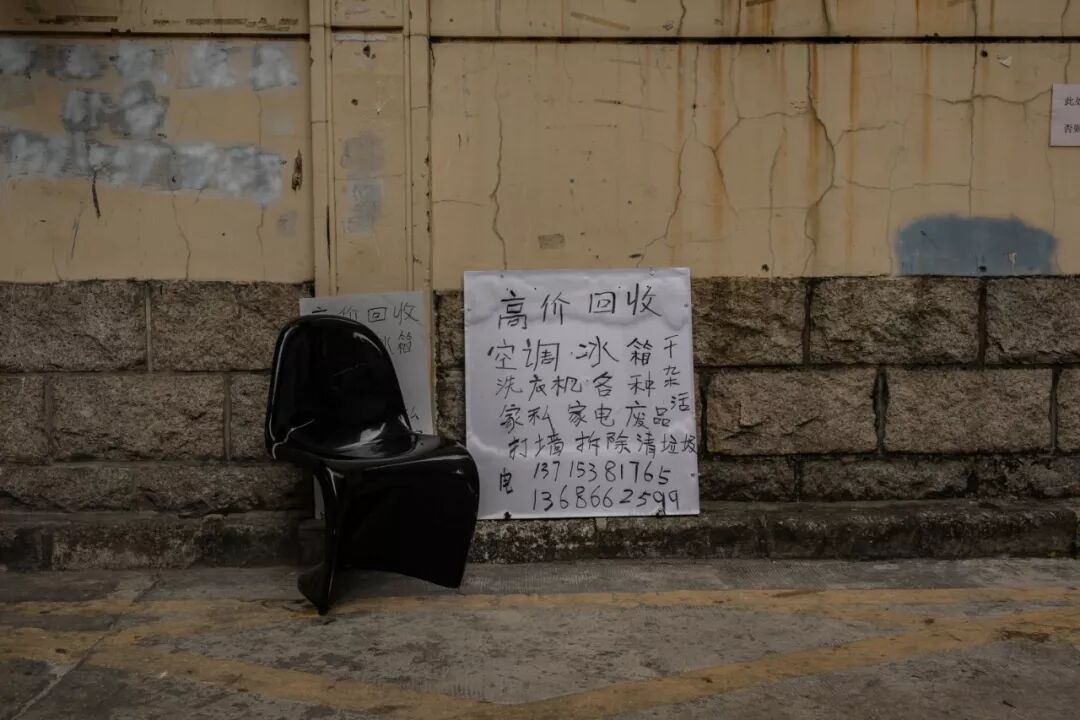 高价回收
空调冰箱
洗衣机各种
家私家电废品
打墙拆除清垃圾
干杂活
电 13715381765
13686662599
高价回收
冰箱
此处
否则